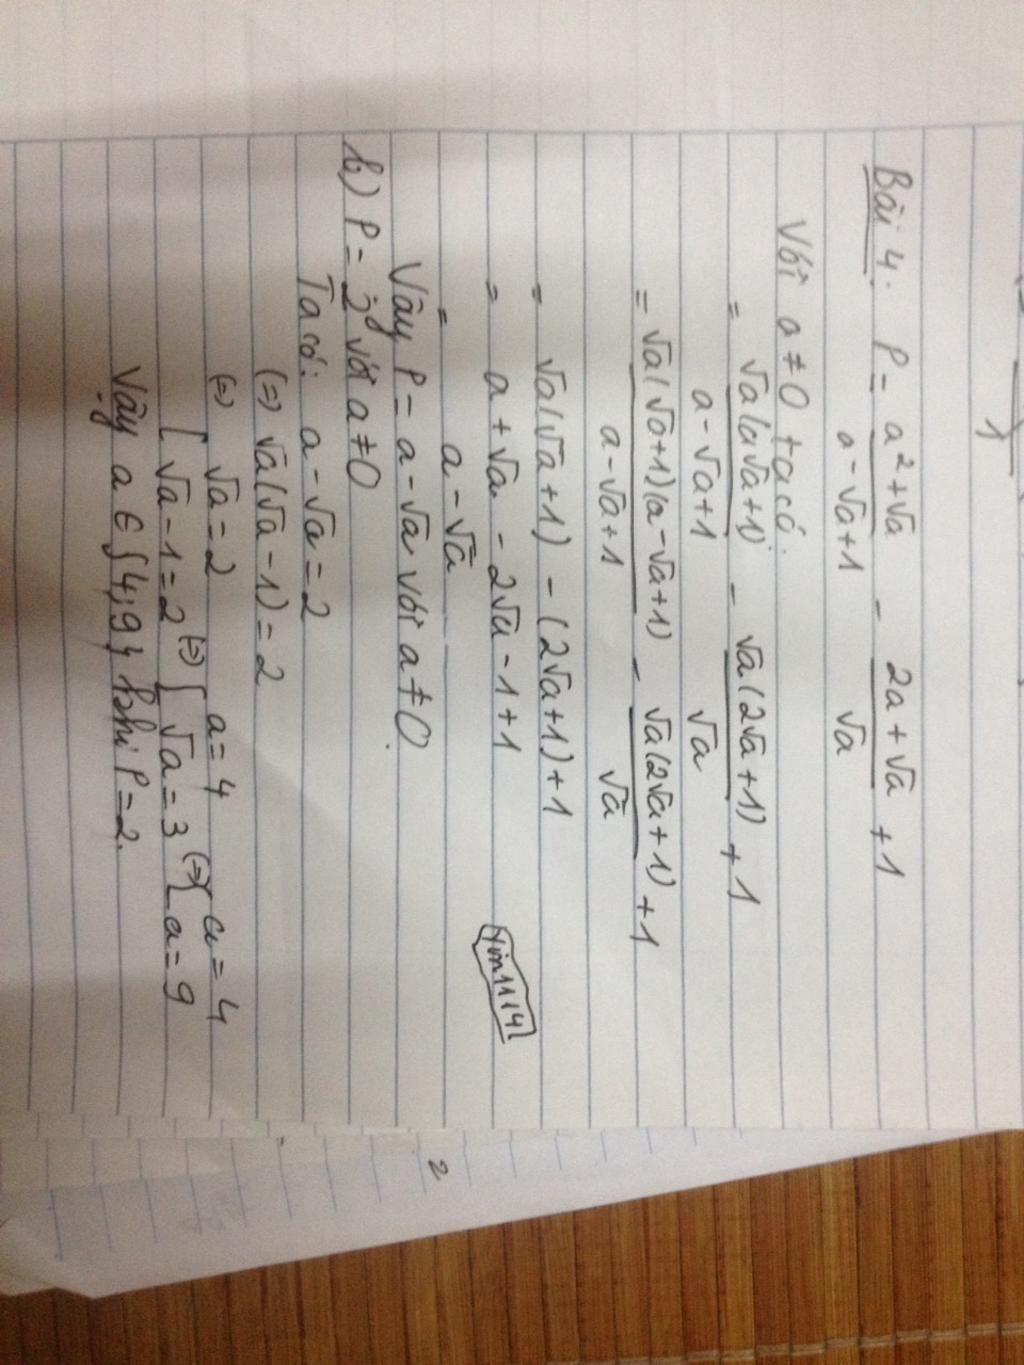 Bài 4: P = a²+√a / a-√a+1 - 2a+√a / √a + 1
Với a ≠ 0 ta có:
= √a(a√a+1) / a-√a+1 - √a(2√a+1) / √a + 1
= √a(√a+1)(a-√a+1) / a-√a+1 - √a(2√a+1) / √a + 1
= √a(√a+1) - (2√a+1)+1
= a+√a - 2√a - 1+1
tin1114
= a - √a
Vậy P = a - √a với a ≠ 0.
b) P = 2 với a ≠ 0
Ta có: a - √a = 2
(=) √a(√a - 1) = 2
(=) [ √a = 2 √a - 1 = 2 (=) [ a = 4 √a = 3 (=) { a = 4 a = 9
Vậy a ∈ {4;9} khi P = 2.
2